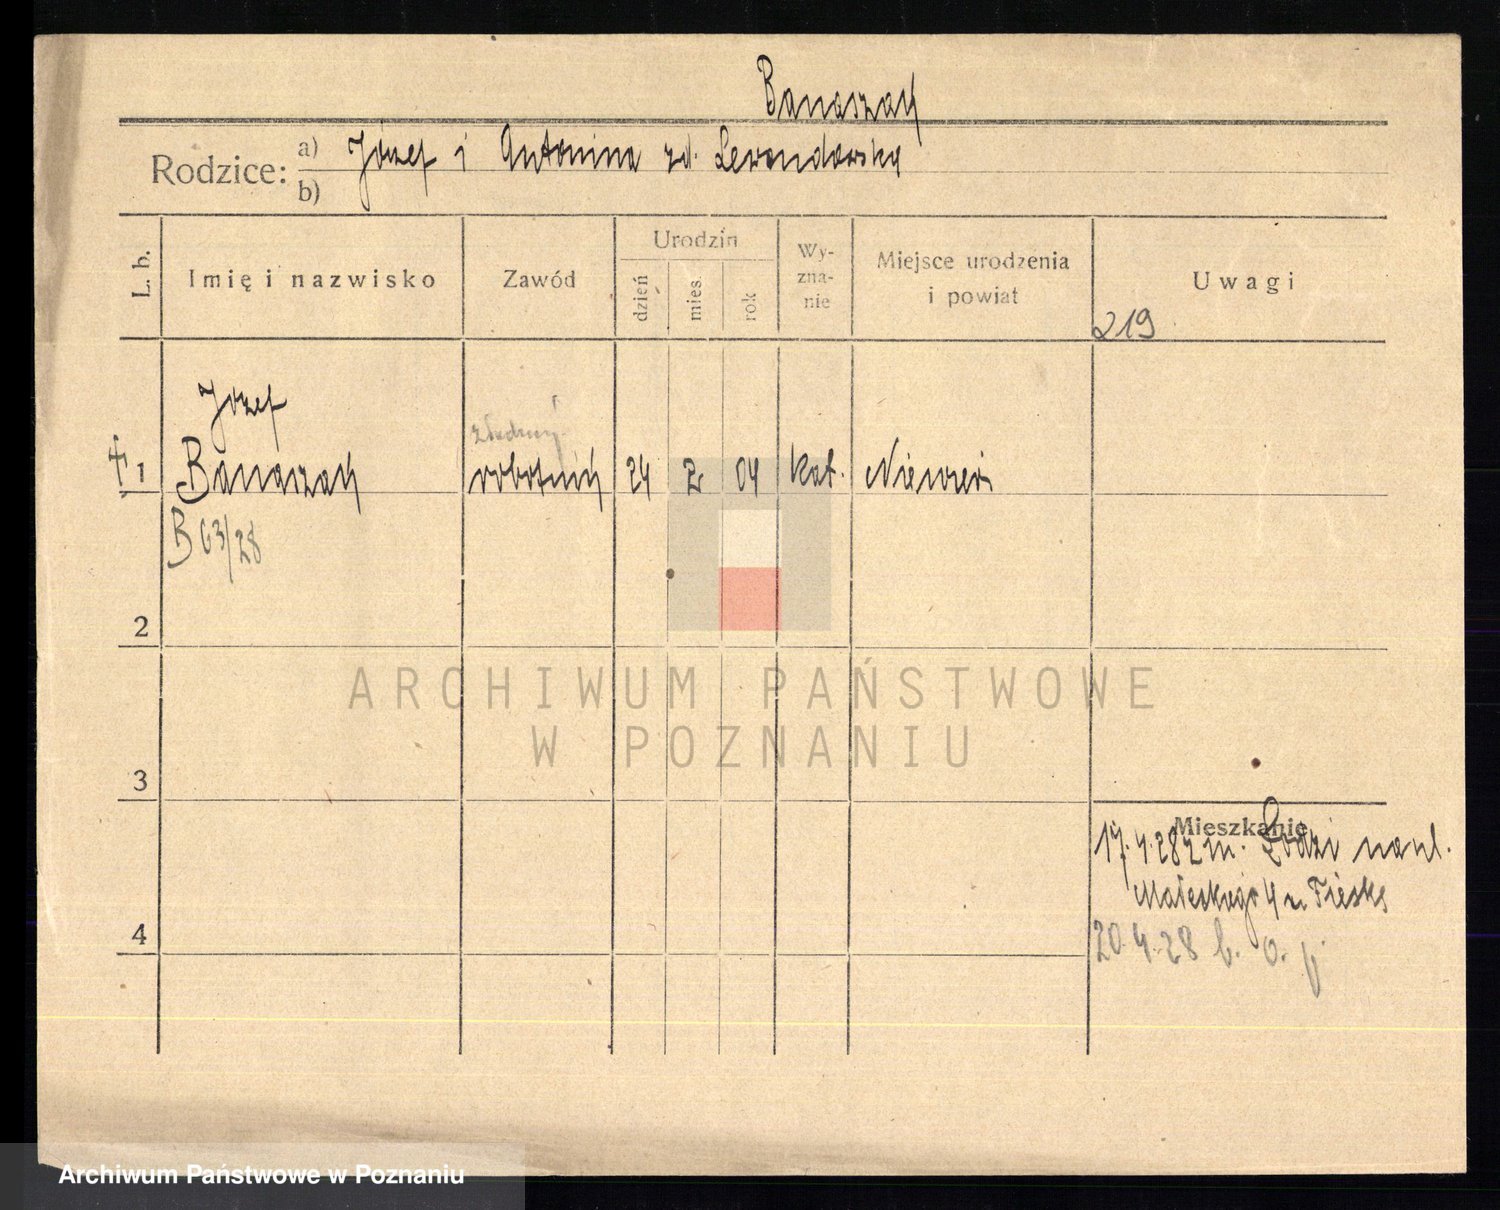 Banaszak
Rodzice:
a) Józef i Antonina zd. Lewandowska
b)
L. b.
Imię i nazwisko
Zawód
Urodzin
dzień
mies
rok
Wy-
zna-
nie
Miejsce urodzenia
i powiat
Uwagi
219
1
Józef
Banaszak
robotnik
24
2
04
kat.
B 63/28
2
ARCHIWUM PAŃSTWOWE
W POZNANIU
3
Mieszkanie
17.4.28 z m. Łodzi na ul.
Małeckiego 4
4
20.4.28 b. o. p.
Archiwum Państwowe w Poznaniu